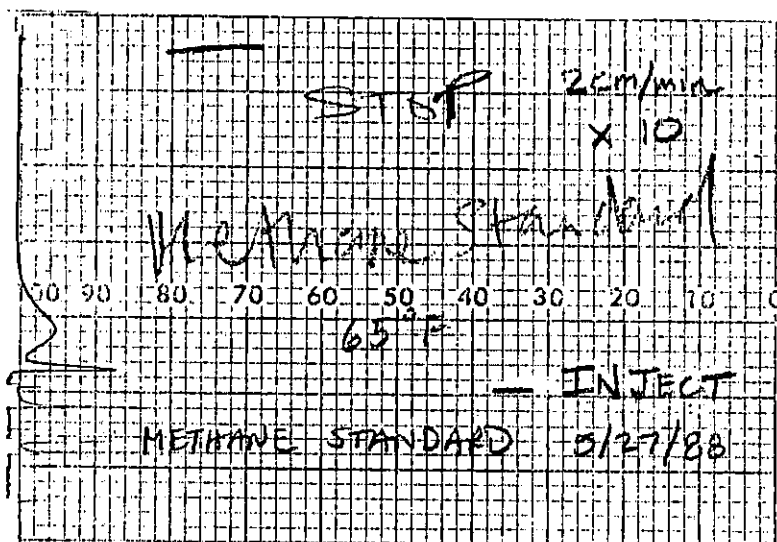 STOP 2cm/min
x 10
Methane Standard
100 90 80 70 60 50 40 30 20 10 0
65°F
— INJECT
METHANE STANDARD 5/27/88